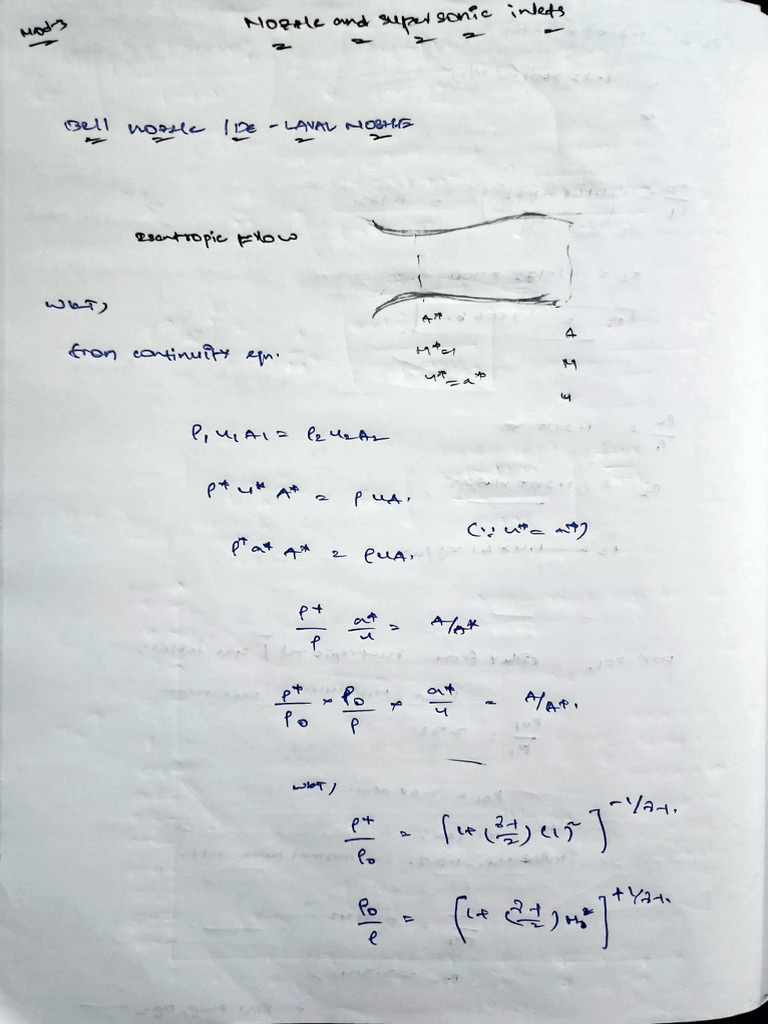 Mod-3
Nozzle and supersonic inlets
Bell nozzle / DE - LAVAL NOZZLE
Isentropic Flow
WKT,
from continuity eqn.
A*
M*=1
u*=a*
A
M
u
ρ₁ u₁ A₁ = ρ₂ u₂ A₂
ρ* u* A* = ρ u A.
(∵ u* = a*)
ρ* a* A* = ρ u A.
ρ*/ρ a*/u = A/A*
ρ*/ρ₀ × ρ₀/ρ × a*/u = A/A*.
WKT,
ρ*/ρ₀ = [1+(γ-1/2)(1)²]^-1/γ-1.
ρ₀/ρ = [1+(γ-1/2) M²]^+1/γ-1.